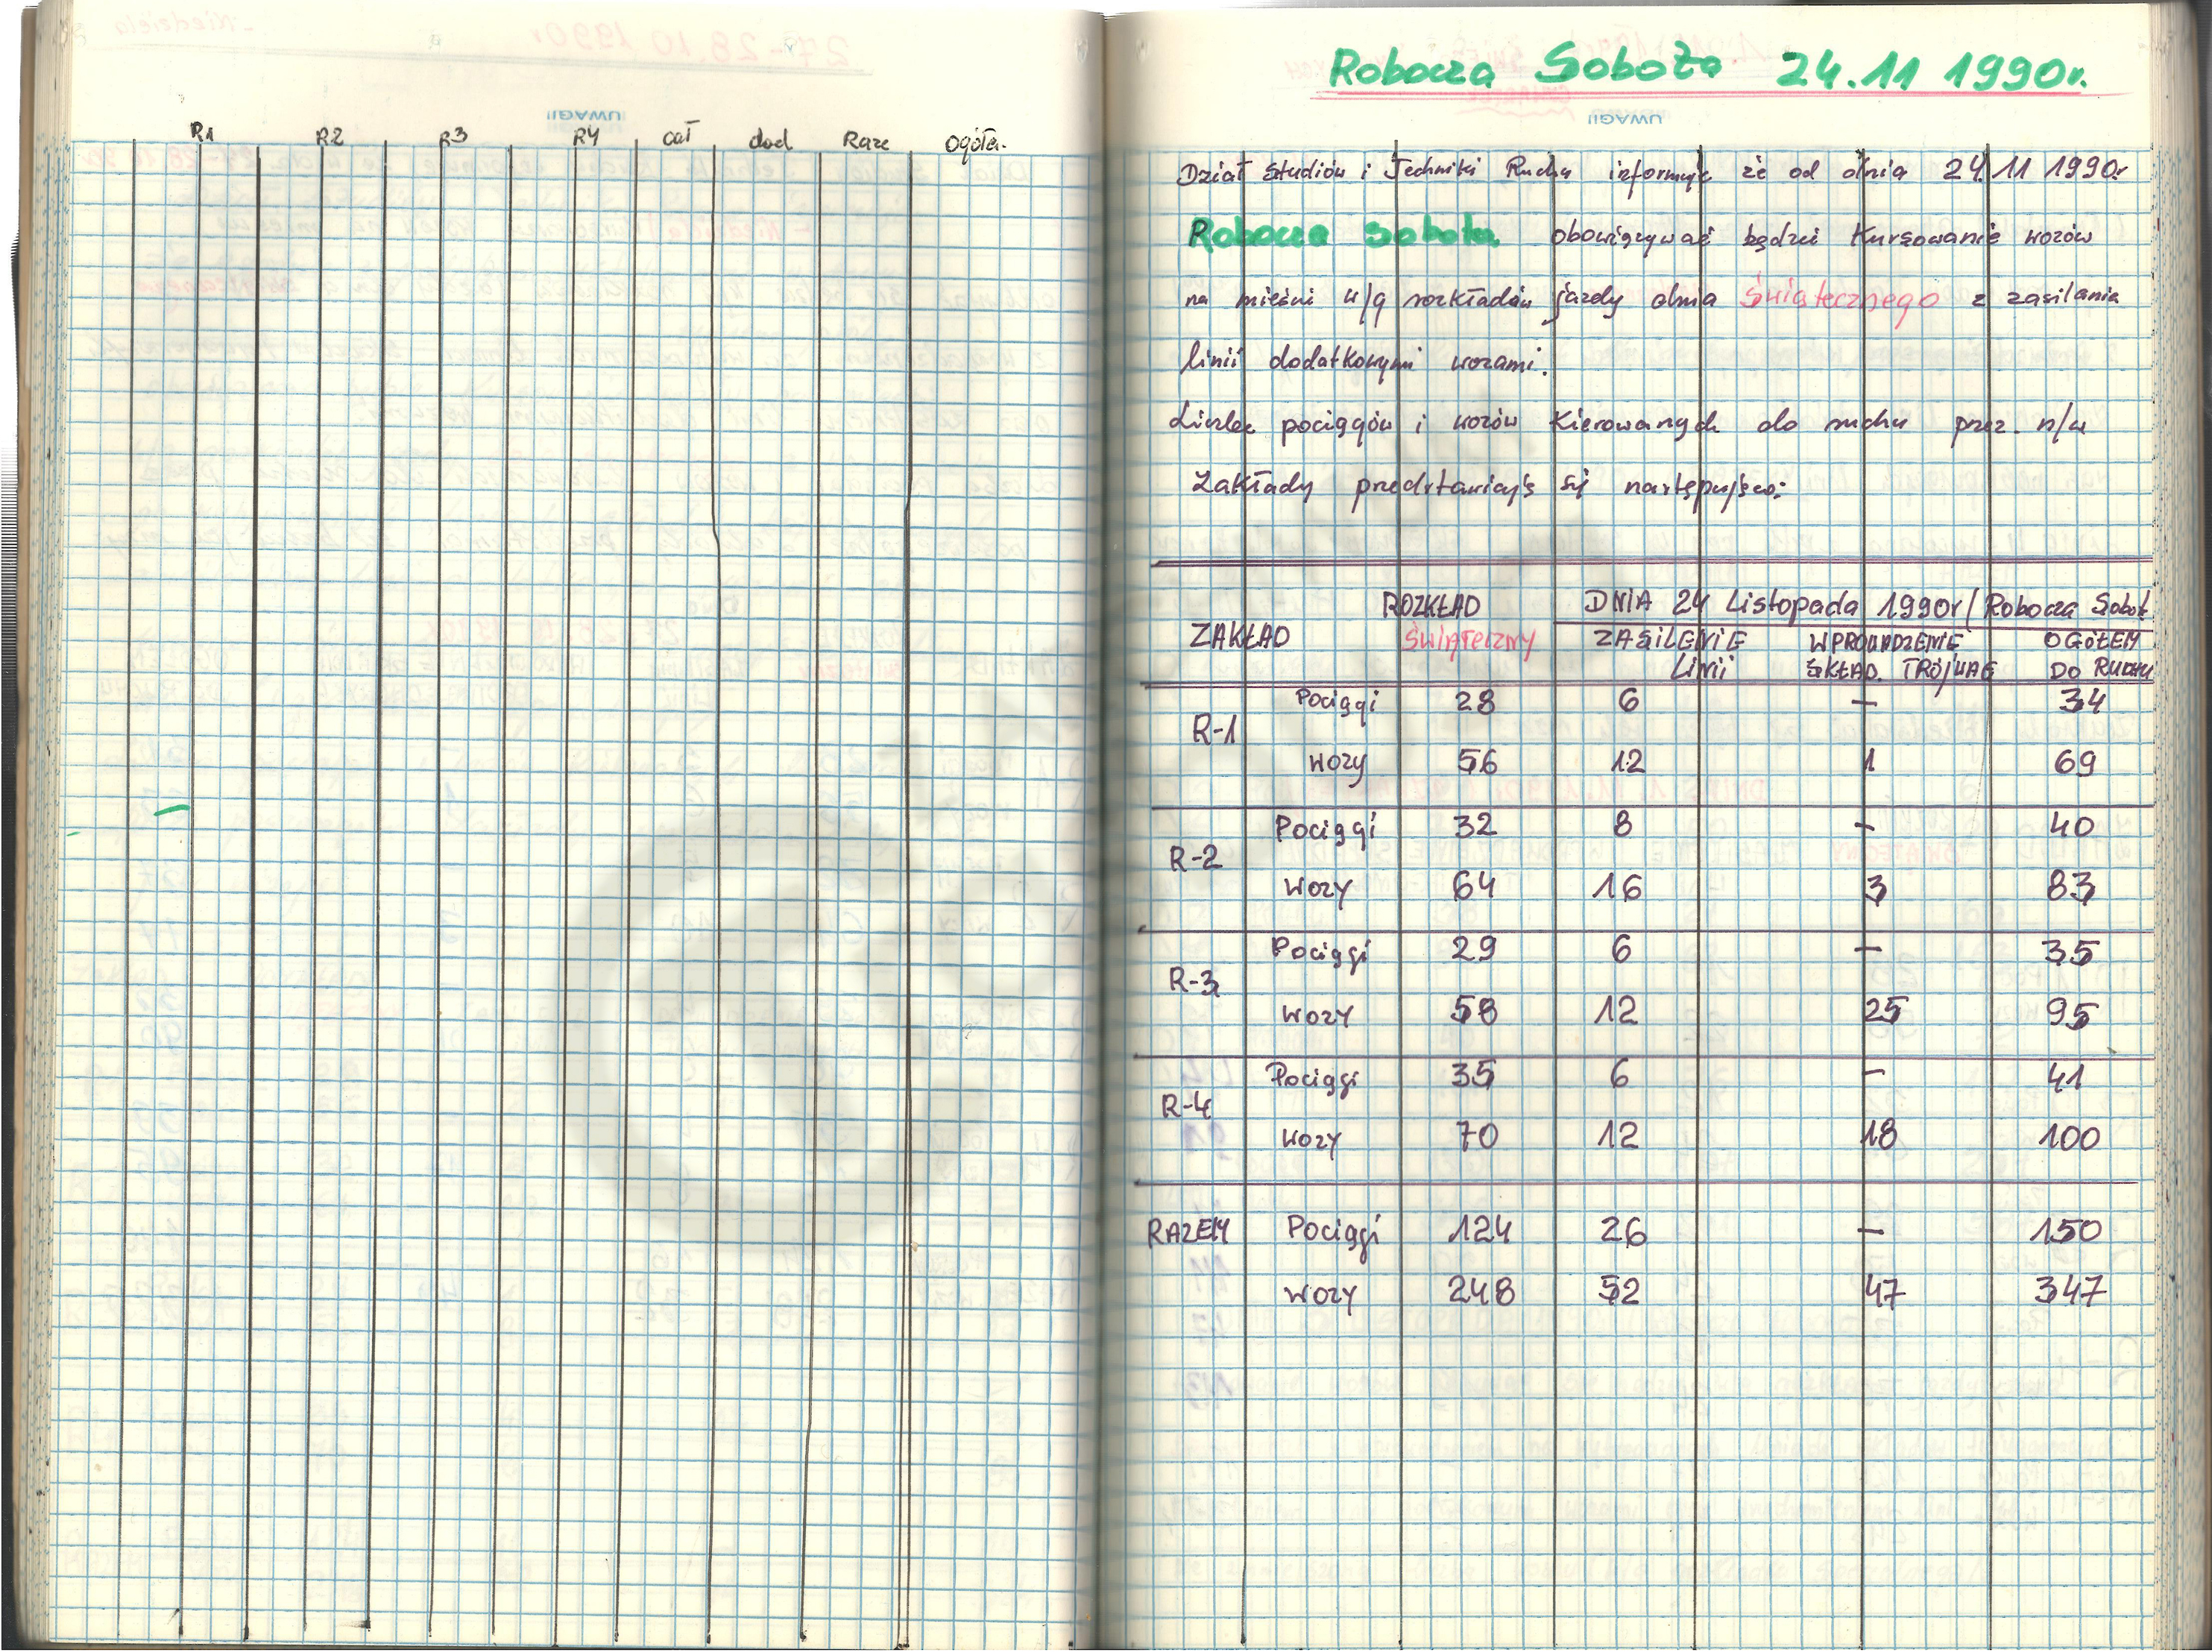 R1 R2 R3 R4 cał dod Raze Ogółe.
Robocza Sobota 24.11 1990r.
UWAGI!
Dział Studiów i Techniki Ruchu informuje że od dnia 24.11 1990r
Robocza Sobota obowiązywać będzie Kursowanie wozów
na mieście w/g rozkładów jazdy dnia Świątecznego z zasilania
linii dodatkowymi wozami.
Liczba pociągów i wozów Kierowanych do ruchu prez. n/w
Zakłady predstawiają się następująco:
ZAKŁAD ROZKŁAD ŚWIĄTECZNY DNIA 24 Listopada 1990r/Robocza Sobot
ZASILENIE LINII WPROWADZENIE SKŁAD. TRÓJWAG OGÓŁEM DO RUCHU
R-1 Pociągi 28 6 – 34
wozy 56 12 1 69
R-2 Pociągi 32 8 – 40
wozy 64 16 3 83
R-3 Pociągi 29 6 – 35
wozy 58 12 25 95
R-4 Pociągi 35 6 – 41
wozy 70 12 18 100
RAZEM Pociągi 124 26 – 150
wozy 248 52 47 347